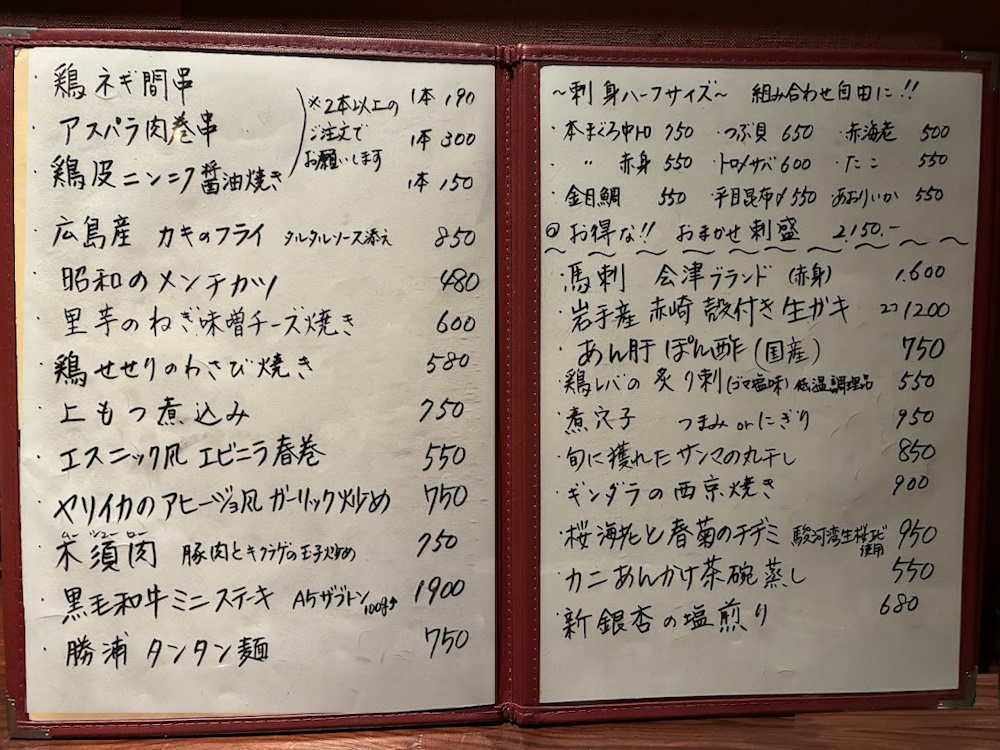 ・鶏ネギ間串 1本 190
・アスパラ肉巻串 1本 300
・鶏皮ニンニク醤油焼き 1本 150
※2本以上の
ご注文で
お願いします
・広島産 カキのフライ タルタルソース添え 850
・昭和のメンチカツ 480
・里芋のねぎ味噌チーズ焼き 600
・鶏せせりのわさび焼き 580
・上もつ煮込み 750
・エスニック風エビニラ春巻 550
・ヤリイカのアヒージョ風ガーリック炒め 750
ムー シュー ロー
・木須肉 豚肉とキクラゲの玉子炒め 750
・黒毛和牛ミニステーキ A5ザブトン100g 1900
・勝浦タンタン麺 750
〜刺身ハーフサイズ〜 組み合わせ自由に!!
・本まぐろ中トロ 750 ・つぶ貝 650 ・赤海老 500
・〃 赤身 550 ・トロ〆サバ 600 ・たこ 550
・金目鯛 550 ・平目昆布〆 550 あおりいか 550
お得な!! おまかせ刺盛 2,150.-
・馬刺 会津ブランド (赤身) 1,600
・岩手産 赤崎 殻付き生ガキ 2コ 1200
・あん肝ぽん酢 (国産) 750
・鶏レバの炙り刺(ゴマ塩味)低温調理品 550
・煮穴子 つまみ orにぎり 950
・旬に獲れたサンマの丸干し 850
・ギンダラの西京焼き 900
・桜海老と春菊のチヂミ 駿河湾生桜エビ使用 950
・カニあんかけ茶碗蒸し 550
・新銀杏の塩煎り 680